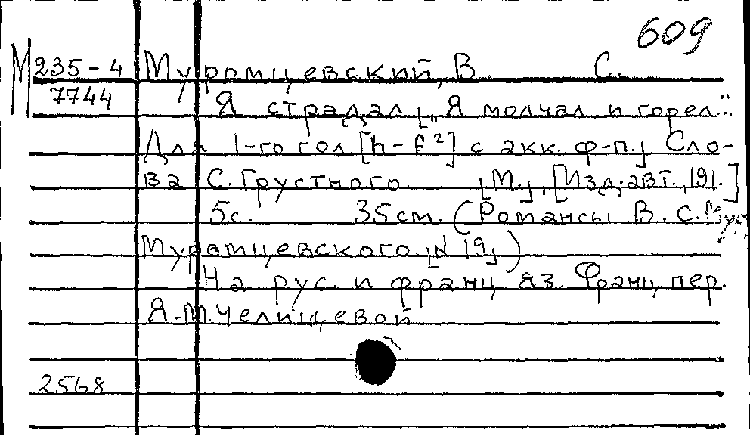 609
М 235-4 Муромцевский, В. С.
7744
Я страдал. „Я молчал и горел".
Для 1-го гол [h-f²] с акк. ф-п. Сло-
ва С. Грустного [М.], [Изд. авт., 191.]
5с. 35см. (Романсы В. С.
Муромцевского. № 19)
На рус. и франц. яз. Франц. пер.
Я.М. Челищевой
2568